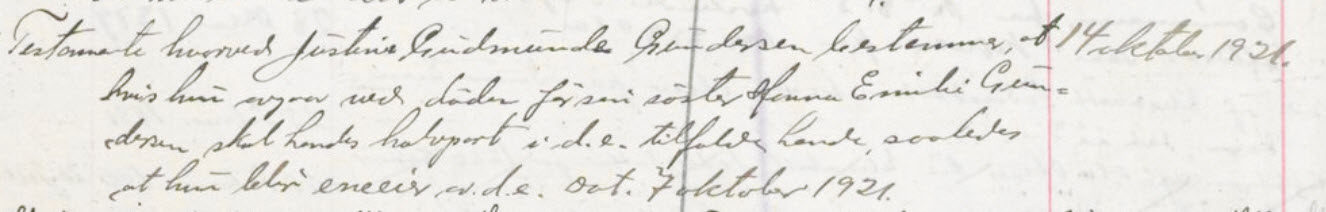 Testamente hvorved Justine Gudmunda Gundersen bestemmer, at 14 oktober 1921.
hvis hun avgaar ved döden för sin söster Hanna Emilie Gun=
dersen skal hendes halvpart i d. e. tilfalde hende, saaledes
at hun blir eneeier av d. e. Dat. 7 oktober 1921.